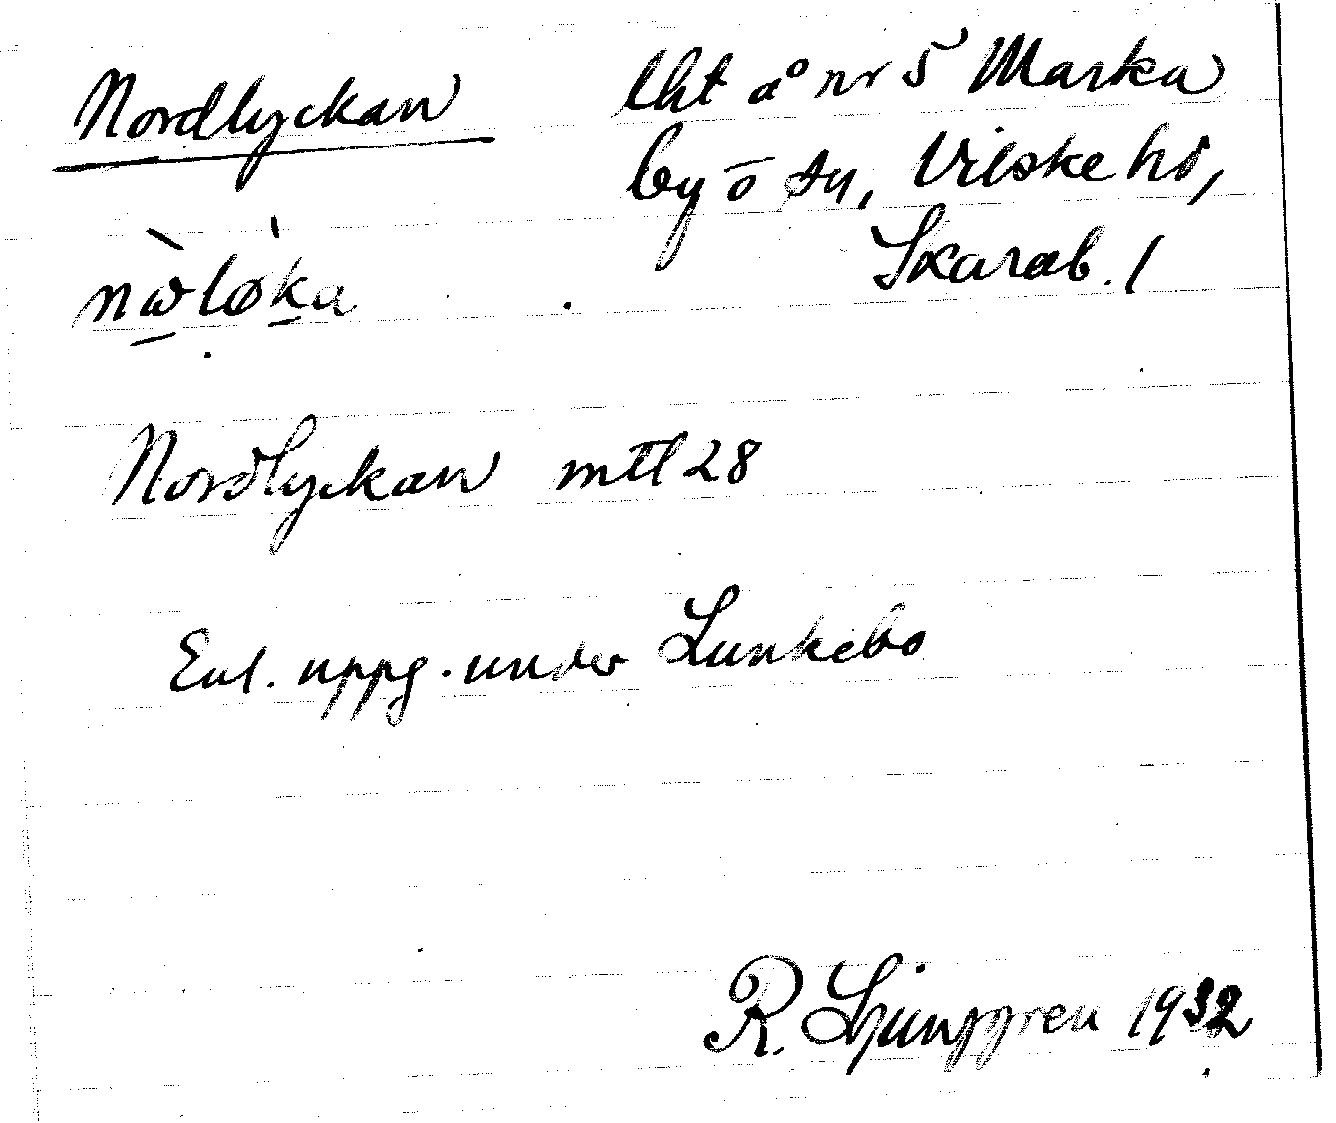 Nordlyckan lht å nr 5 Marka
by ö sn, Vilske hd,
nωløka Skarab. l
Nordlyckan mtl 28
Enl. uppg. under Lunkebo
R. Ljunggren 1932